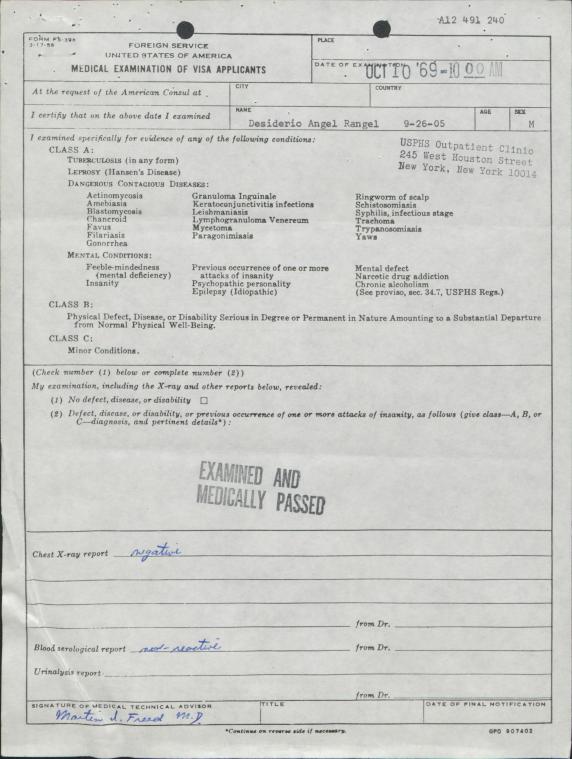 A12 491 240
FORM FS-398
2-17-58
FOREIGN SERVICE
UNITED STATES OF AMERICA
MEDICAL EXAMINATION OF VISA APPLICANTS
PLACE
DATE OF EXAMINATION
OCT 10 '69 - 10 00 AM
At the request of the American Consul at
CITY
COUNTRY
I certify that on the above date I examined
NAME
Desiderio Angel Rangel 9-26-05
AGE
SEX
M
I examined specifically for evidence of any of the following conditions:
USPHS Outpatient Clinic
245 West Houston Street
New York, New York 10014
CLASS A:
TUBERCULOSIS (in any form)
LEPROSY (Hansen's Disease)
DANGEROUS CONTAGIOUS DISEASES:
Actinomycosis
Amebiasis
Blastomycosis
Chancroid
Favus
Filariasis
Gonorrhea
Granuloma Inguinale
Keratoconjunctivitis infections
Leishmaniasis
Lymphogranuloma Venereum
Mycetoma
Paragonimiasis
Ringworm of scalp
Schistosomiasis
Syphilis, infectious stage
Trachoma
Trypanosomiasis
Yaws
MENTAL CONDITIONS:
Feeble-mindedness
(mental deficiency)
Insanity
Previous occurrence of one or more
attacks of insanity
Psychopathic personality
Epilepsy (Idiopathic)
Mental defect
Narcotic drug addiction
Chronic alcoholism
(See proviso, sec. 34.7, USPHS Regs.)
CLASS B:
Physical Defect, Disease, or Disability Serious in Degree or Permanent in Nature Amounting to a Substantial Departure
from Normal Physical Well-Being.
CLASS C:
Minor Conditions.
(Check number (1) below or complete number (2))
My examination, including the X-ray and other reports below, revealed:
(1) No defect, disease, or disability
(2) Defect, disease, or disability, or previous occurrence of one or more attacks of insanity, as follows (give class—A, B, or
C—diagnosis, and pertinent details*):
EXAMINED AND
MEDICALLY PASSED
Chest X-ray report negative
from Dr.
Blood serological report non-reactive from Dr.
Urinalysis report
from Dr.
SIGNATURE OF MEDICAL TECHNICAL ADVISOR
Martin I. Freed M.D.
TITLE
DATE OF FINAL NOTIFICATION
*Continue on reverse side if necessary.
GPO 907402